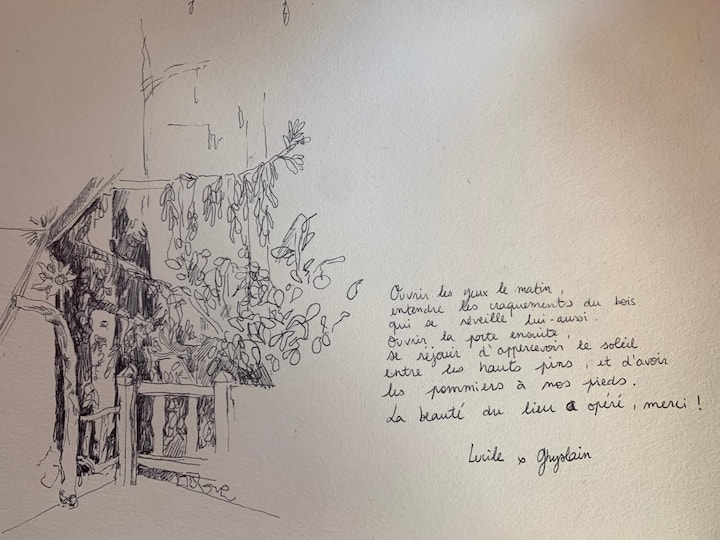 Ouvrir les yeux le matin,
entendre les craquements du bois
qui se réveille lui-aussi.
Ouvrir la porte ensuite,
se réjouir d'appercevoir le soleil
entre les hauts pins, et d'avoir
les pommiers à nos pieds.
La beauté du lieu a opéré, merci !
Lucile x Ghyslain